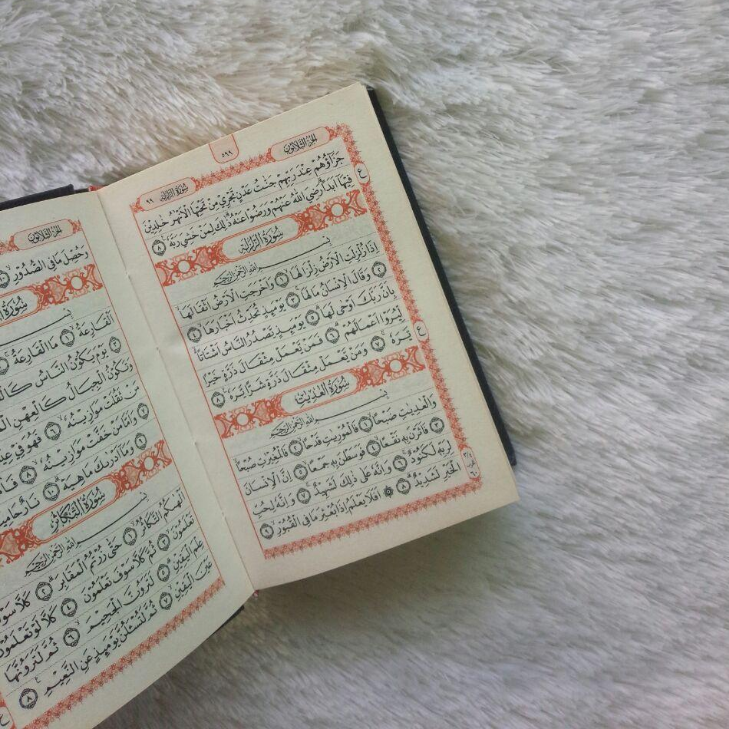 ٥٩٩
الجزء الثلاثون
سورة الزلزلة ٩٩
جَزَآؤُهُمْ عِنْدَ رَبِّهِمْ جَنّٰتُ عَدْنٍ تَجْرِيْ مِنْ تَحْتِهَا الْاَنْهٰرُ خٰلِدِيْنَ
فِيْهَآ اَبَدًا رَضِيَ اللّٰهُ عَنْهُمْ وَرَضُوْا عَنْهُ ذٰلِكَ لِمَنْ خَشِيَ رَبَّهٗ ٨
سورة الزلزلة
بسم الله الرحمن الرحيم
اِذَا زُلْزِلَتِ الْاَرْضُ زِلْزَالَهَا ١ وَاَخْرَجَتِ الْاَرْضُ اَثْقَالَهَا
٢ وَقَالَ الْاِنْسَانُ مَا لَهَا ٣ يَوْمَئِذٍ تُحَدِّثُ اَخْبَارَهَا ٤
بِاَنَّ رَبَّكَ اَوْحٰى لَهَا ٥ يَوْمَئِذٍ يَّصْدُرُ النَّاسُ اَشْتَاتًا
لِّيُرَوْا اَعْمَالَهُمْ ٦ فَمَنْ يَّعْمَلْ مِثْقَالَ ذَرَّةٍ خَيْرًا
يَّرَهٗ ٧ وَمَنْ يَّعْمَلْ مِثْقَالَ ذَرَّةٍ شَرًّا يَّرَهٗ ٨
سورة العٰديٰت
بسم الله الرحمن الرحيم
وَالْعٰدِيٰتِ ضَبْحًا ١ فَالْمُوْرِيٰتِ قَدْحًا ٢ فَالْمُغِيْرٰتِ صُبْحًا
٣ فَاَثَرْنَ بِهٖ نَقْعًا ٤ فَوَسَطْنَ بِهٖ جَمْعًا ٥ اِنَّ الْاِنْسَانَ
لِرَبِّهٖ لَكَنُوْدٌ ٦ وَاِنَّهٗ عَلٰى ذٰلِكَ لَشَهِيْدٌ ٧ وَاِنَّهٗ لِحُبِّ
الْخَيْرِ لَشَدِيْدٌ ٨ اَفَلَا يَعْلَمُ اِذَا بُعْثِرَ مَا فِى الْقُبُوْرِ ٩
الجزء الثلاثون
وَحُصِّلَ مَا فِى الصُّدُوْرِ ١٠
سورة
اَلْقَارِعَةُ ١ مَا الْقَارِعَةُ
يَوْمَ يَكُوْنُ النَّاسُ
وَتَكُوْنُ الْجِبَالُ كَالْعِهْنِ
مَنْ ثَقُلَتْ مَوَازِيْنُهٗ ٦ فَهُوَ فِيْ
وَاَمَّا مَنْ خَفَّتْ مَوَازِيْنُهٗ ٨
وَمَآ اَدْرٰىكَ مَا هِيَهْ ١٠ نَارٌ
سورة التكاثر
بسم الله الرحمن الرحيم
اَلْهٰىكُمُ التَّكَاثُرُ ١ حَتّٰى زُرْتُمُ الْمَقَابِرَ ٢ كَلَّا سَوْفَ
تَعْلَمُوْنَ ٣ ثُمَّ كَلَّا سَوْفَ تَعْلَمُوْنَ ٤ كَلَّا لَوْ تَعْلَمُوْنَ
عِلْمَ الْيَقِيْنِ ٥ لَتَرَوُنَّ الْجَحِيْمَ ٦ ثُمَّ لَتَرَوُنَّهَا
عَيْنَ الْيَقِيْنِ ٧ ثُمَّ لَتُسْـَٔلُنَّ يَوْمَئِذٍ عَنِ النَّعِيْمِ ٨